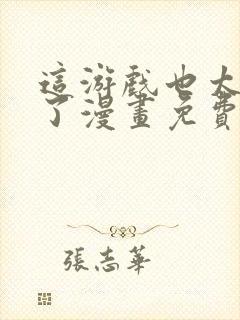 這游戲也太
了漫畫免費
張志華